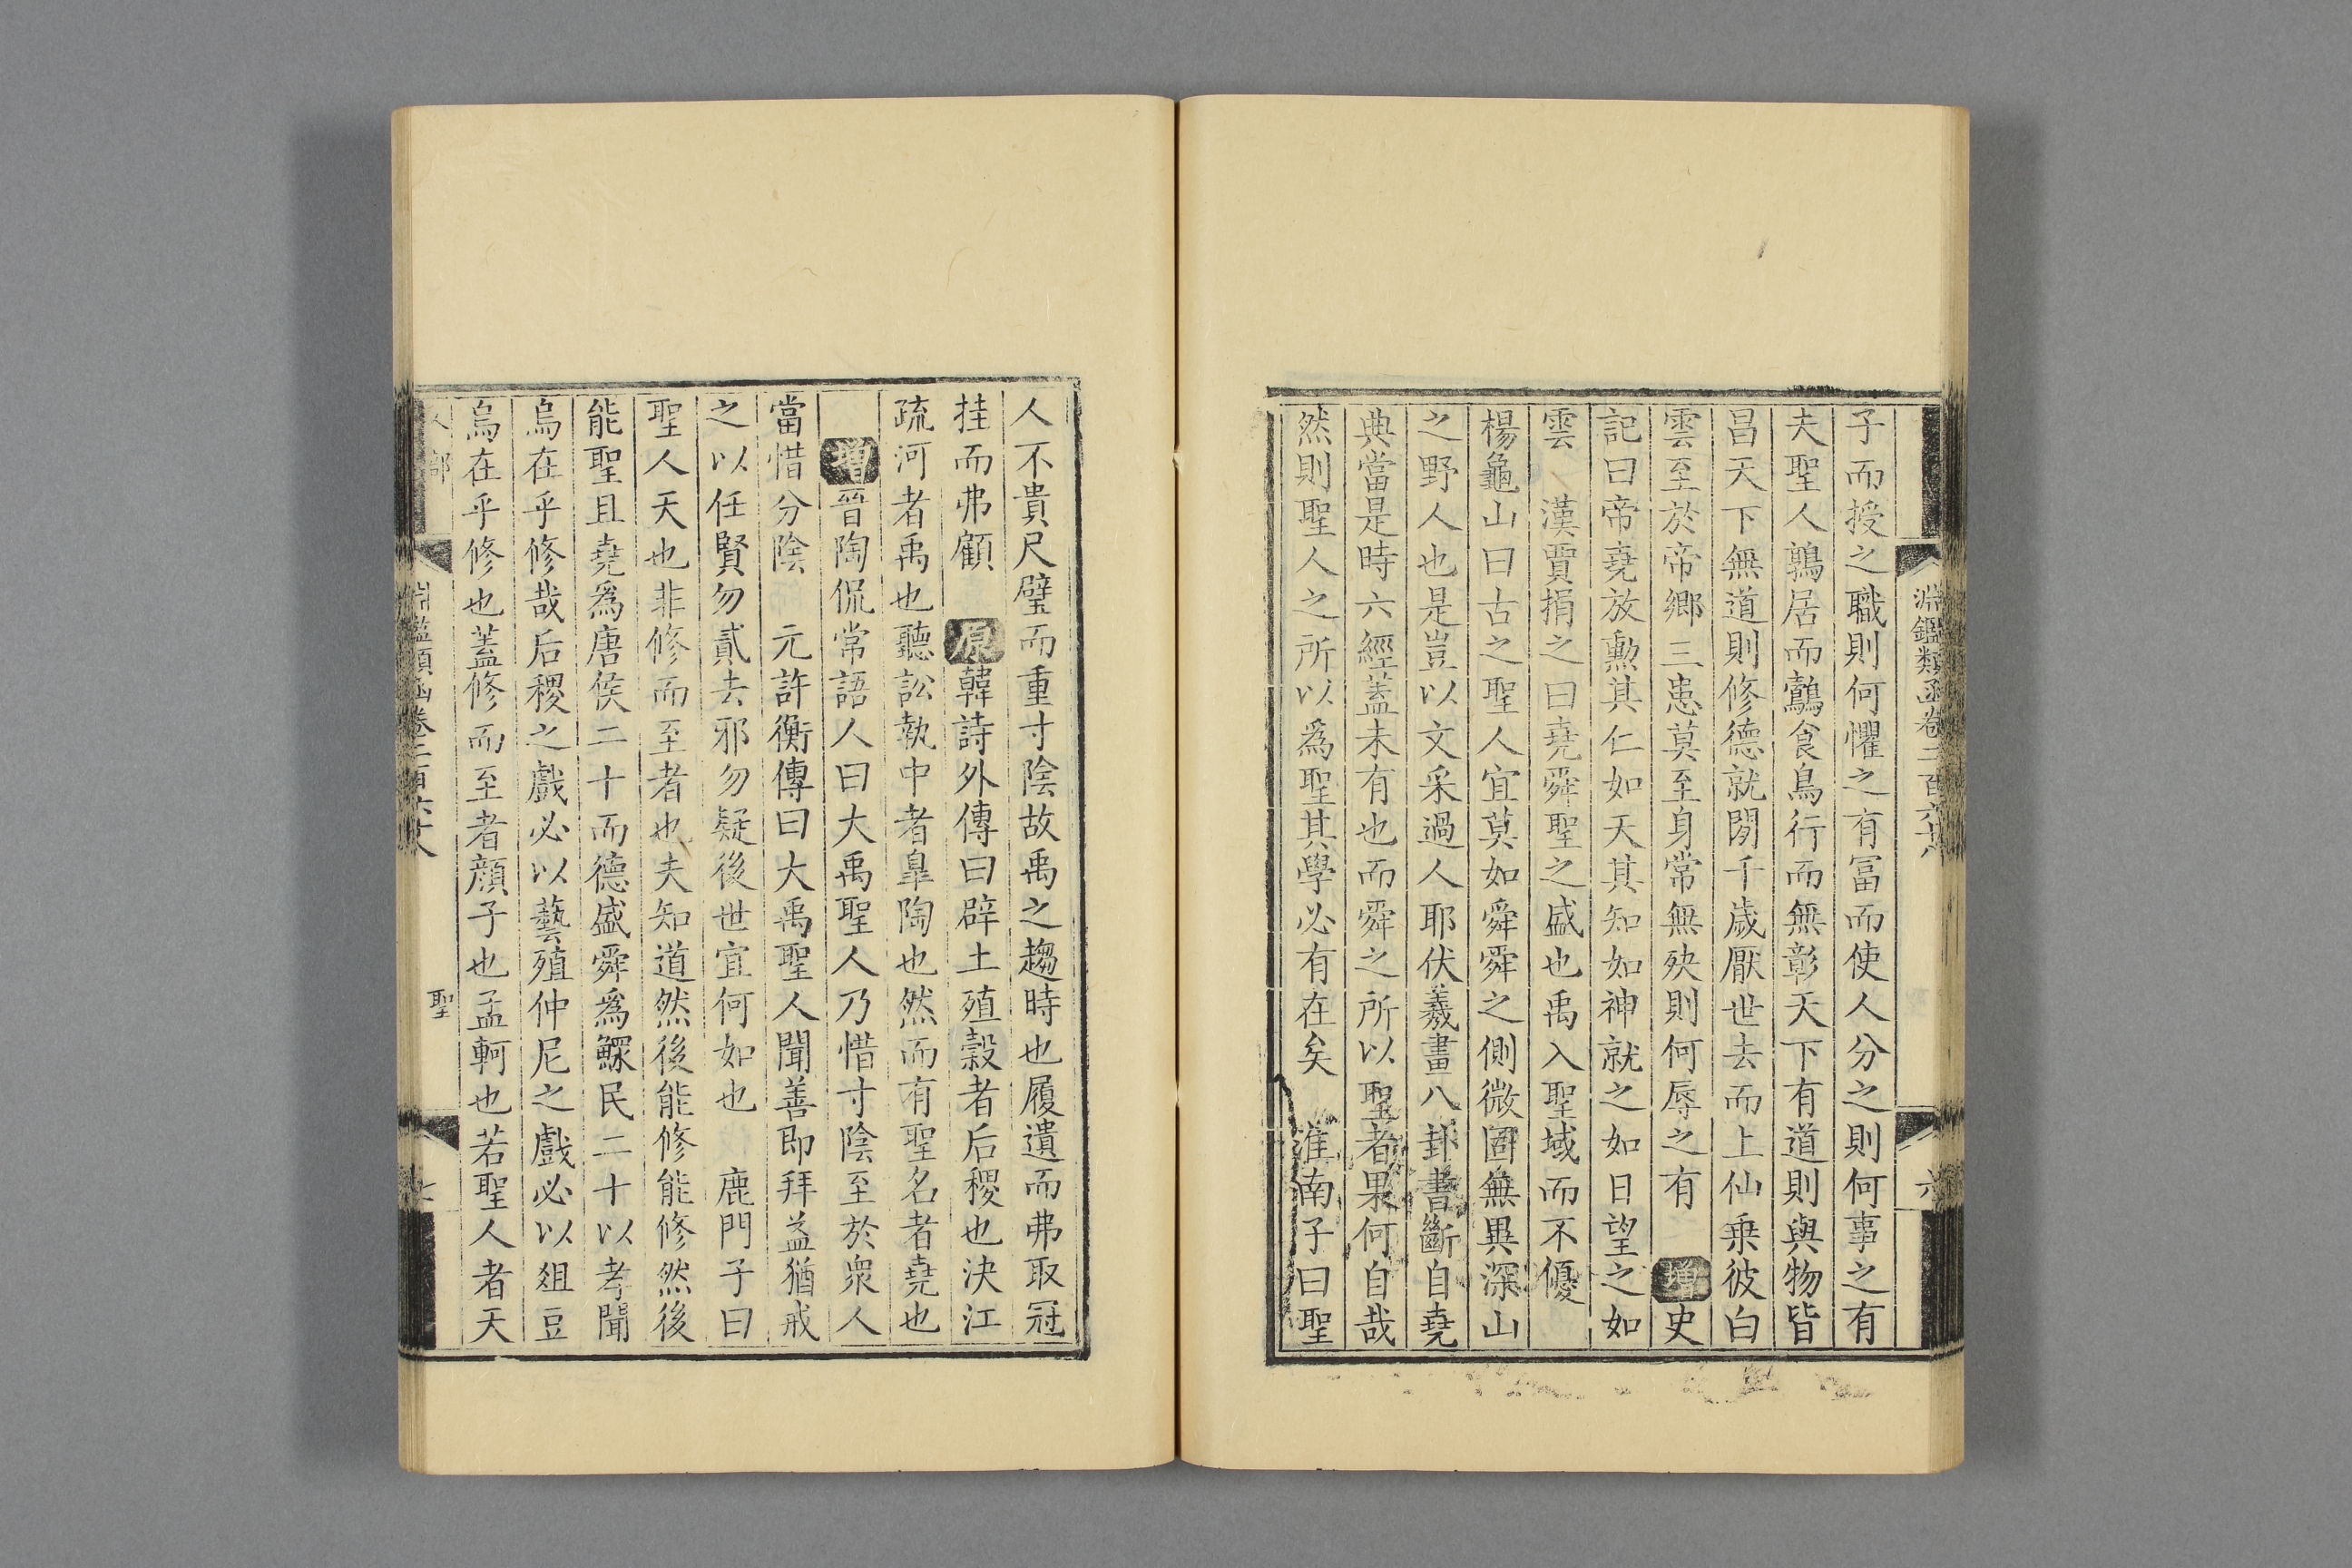 淵鑑類函卷二百六十八
六
子而授之職則何懼之有冨而使人分之則何事之有
夫聖人鶉居而鷇食鳥行而無彰天下有道則與物皆
昌天下無道則修德就閒千歲厭世去而上仙乗彼白
雲至於帝鄉三患莫至身常無殃則何辱之有 增史
記曰帝堯放勲其仁如天其知如神就之如日望之如
雲 漢賈捐之曰堯舜聖之盛也禹入聖域而不優
楊龜山曰古之聖人宜莫如舜舜之側微固無異深山
之野人也是豈以文采過人耶伏羲畫八卦書斷自堯
典當是時六經蓋未有也而舜之所以聖者果何自哉
然則聖人之所以為聖其學必有在矣 淮南子曰聖
人不貴尺璧而重寸陰故禹之趨時也履遺而弗取冠
挂而弗顧 原韓詩外傳曰辟土殖穀者后稷也決江
疏河者禹也聽訟執中者皐陶也然而有聖名者堯也
增晉陶侃常語人曰大禹聖人乃惜寸陰至於衆人
當惜分陰 元許衡傳曰大禹聖人聞善即拜益猶戒
之以任賢勿貳去邪勿疑後世宜何如也 鹿門子曰
聖人天也非修而至者也夫知道然後能修能修然後
能聖且堯爲唐侯二十而德盛舜爲鰥民二十以孝聞
烏在乎修哉后稷之戲必以藝殖仲尼之戲必以俎豆
烏在乎修也蓋修而至者顔子也孟軻也若聖人者天
人部 淵鑑類函卷二百六十八 聖 七